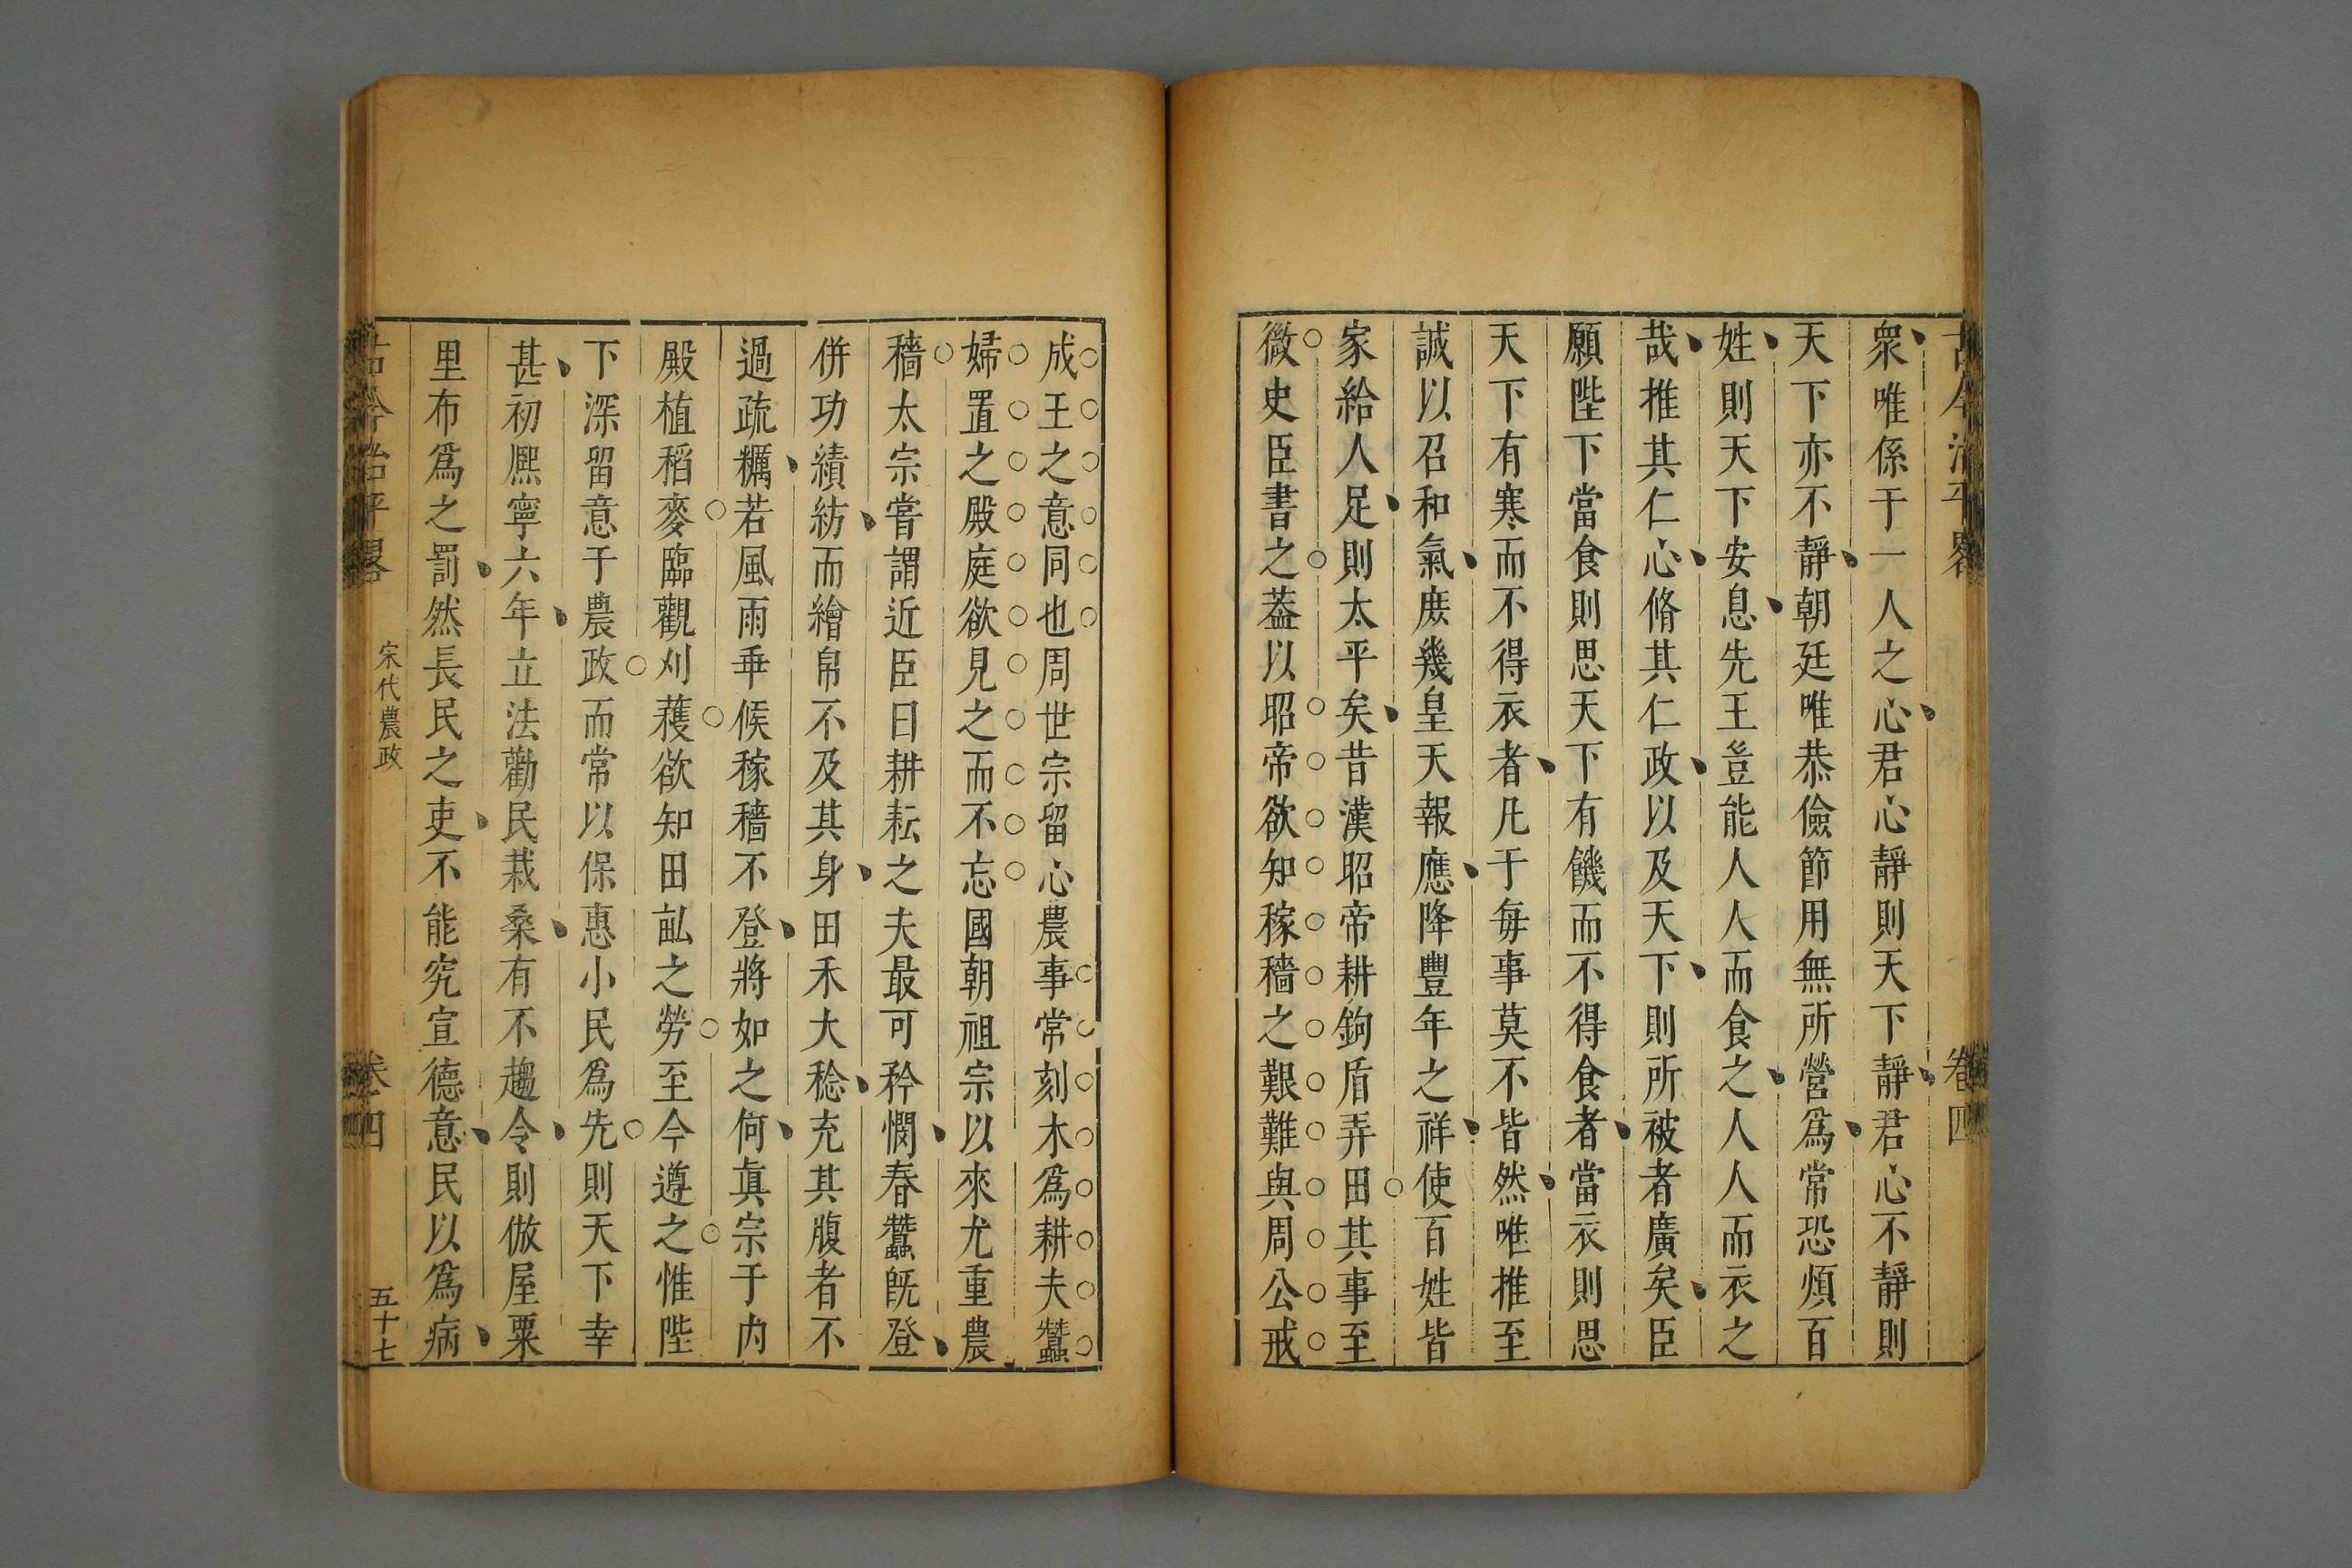 古今治平畧
卷四
衆唯係于一人之心君心靜則天下靜君心不靜則
天下亦不靜朝廷唯恭儉節用無所營爲常恐煩百
姓則天下安息先王豈能人人而食之人人而衣之
哉推其仁心脩其仁政以及天下則所被者廣矣臣
願陛下當食則思天下有饑而不得食者當衣則思
天下有寒而不得衣者凡于每事莫不皆然唯推至
誠以召和氣庶幾皇天報應降豐年之祥使百姓皆
家給人足則太平矣昔漢昭帝耕鉤盾弄田其事至
微史臣書之葢以昭帝欲知稼穡之艱難與周公戒
成王之意同也周世宗留心農事常刻木爲耕夫蠶
婦置之殿庭欲見之而不忘國朝祖宗以來尤重農
穡太宗嘗謂近臣曰耕耘之夫最可矜憫春蠶旣登
併功績紡而繒帛不及其身田禾大稔充其腹者不
過疏糲若風雨乖候稼穡不登將如之何眞宗于內
殿植稻麥臨觀刈穫欲知田畝之勞至今遵之惟陛
下深留意于農政而常以保惠小民爲先則天下幸
甚初熙寧六年立法勸民栽桑有不趨令則倣屋粟
里布爲之罰然長民之吏不能究宣德意民以爲病
古今治平畧
宋代農政
卷四
五十七